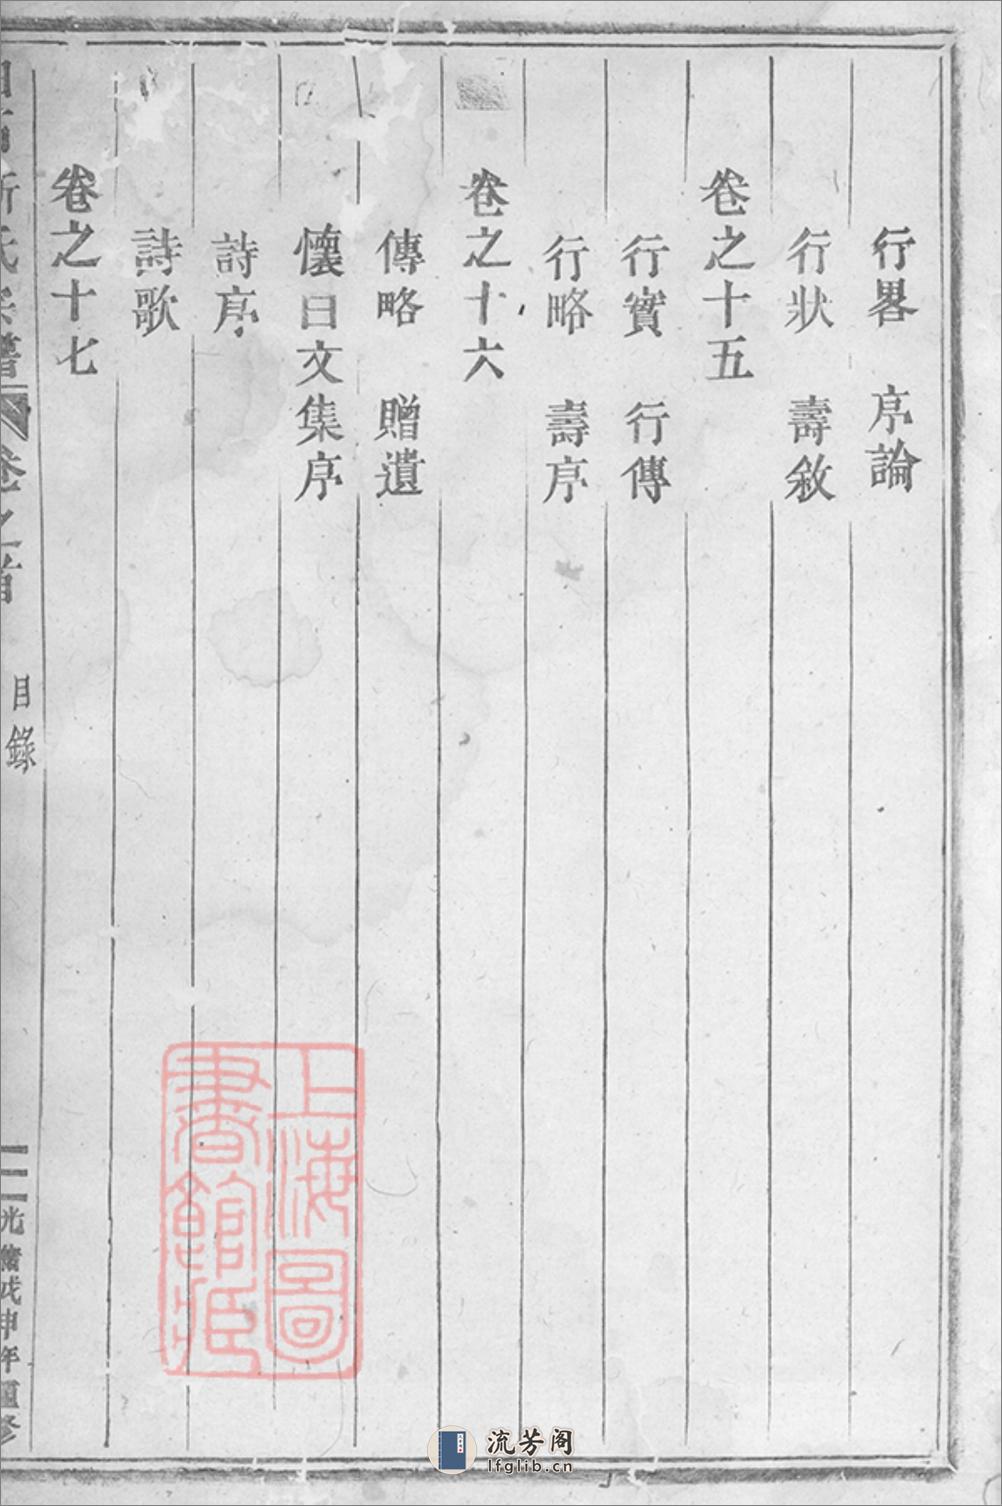 行畧　序論
行狀　壽敘
卷之十五
行實　行傳
行略　壽序
卷之十六
傳略　贈遺
懷日文集序
詩序
詩歌
卷之十七
氏宗譜　卷之首　目錄　三　光緒戊申年重修
上海圖書館藏
流芳阁
lfglib.cn